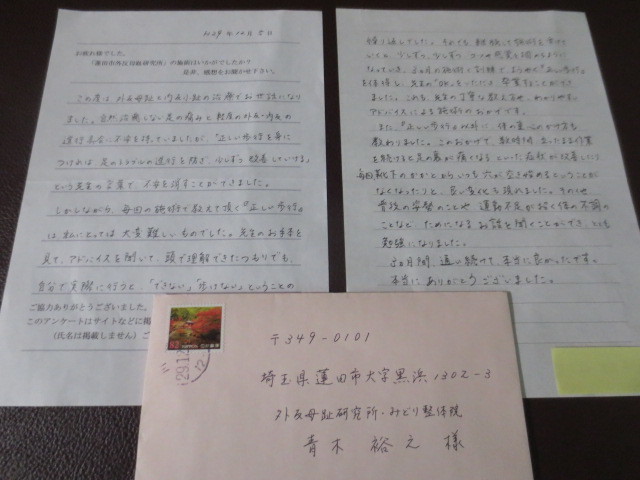 H29年12月5日
お疲れ様でした。
『蓮田市外反母趾研究所』の施術はいかがでしたか？
是非、感想をお聞かせ下さい。
この度は、外反母趾と内反小趾の治療でお世話になり
ました。自然治癒しない足の痛みと軽度の外反・内反の
進行具合に不安を持っていましたが、"正しい歩行を身に
つければ、足のトラブルの進行を防ぎ、少しずつ改善していける"
という先生の言葉で、不安を消すことができました。
しかしながら、毎回の施術で教えて頂く"正しい歩行"
は、私にとっては大変難しいものでした。先生のお手本を
見て、アドバイスを聞いて、頭で理解できたつもりでも、
自分で実際に行うと、「できない」「歩けない」ということの
ご協力ありがとうございました。
このアンケートはサイトなどに掲
（氏名は掲載しません）ご
繰り返しでした。それでも、継続して施術を受けて
いくと、少しずつ、少しずつ
なっていき、3ヵ月の施術と訓練で
を獲得し、先生の"OK"をいただき、卒業することができ
ました。これも、先生の丁寧な教え方や、
アドバイスによる施術のおかげです。
また、"正しい歩行"以外に、体の重心のかけ方も
教わりました。このおかげで、数時間、立ったまま作業
を続けると足の裏が痛くなるといった症状が改善したり
毎回靴下のかかとからいつも穴が空き始めるということが
なくなったりと、良い変化も頂けました。その他
普段の姿勢のことや、運動不足が招く体の不調の
ことなど、ためになるお話を聞くことができ、とても
勉強になりました。
3ヵ月間、通い続けて、本当に良かったです。
本当にありがとうございました。
82
29.12
〒349-0101
埼玉県蓮田市大字黒浜1302-3
外反母趾研究所・みどり整体院
青木 裕之 様